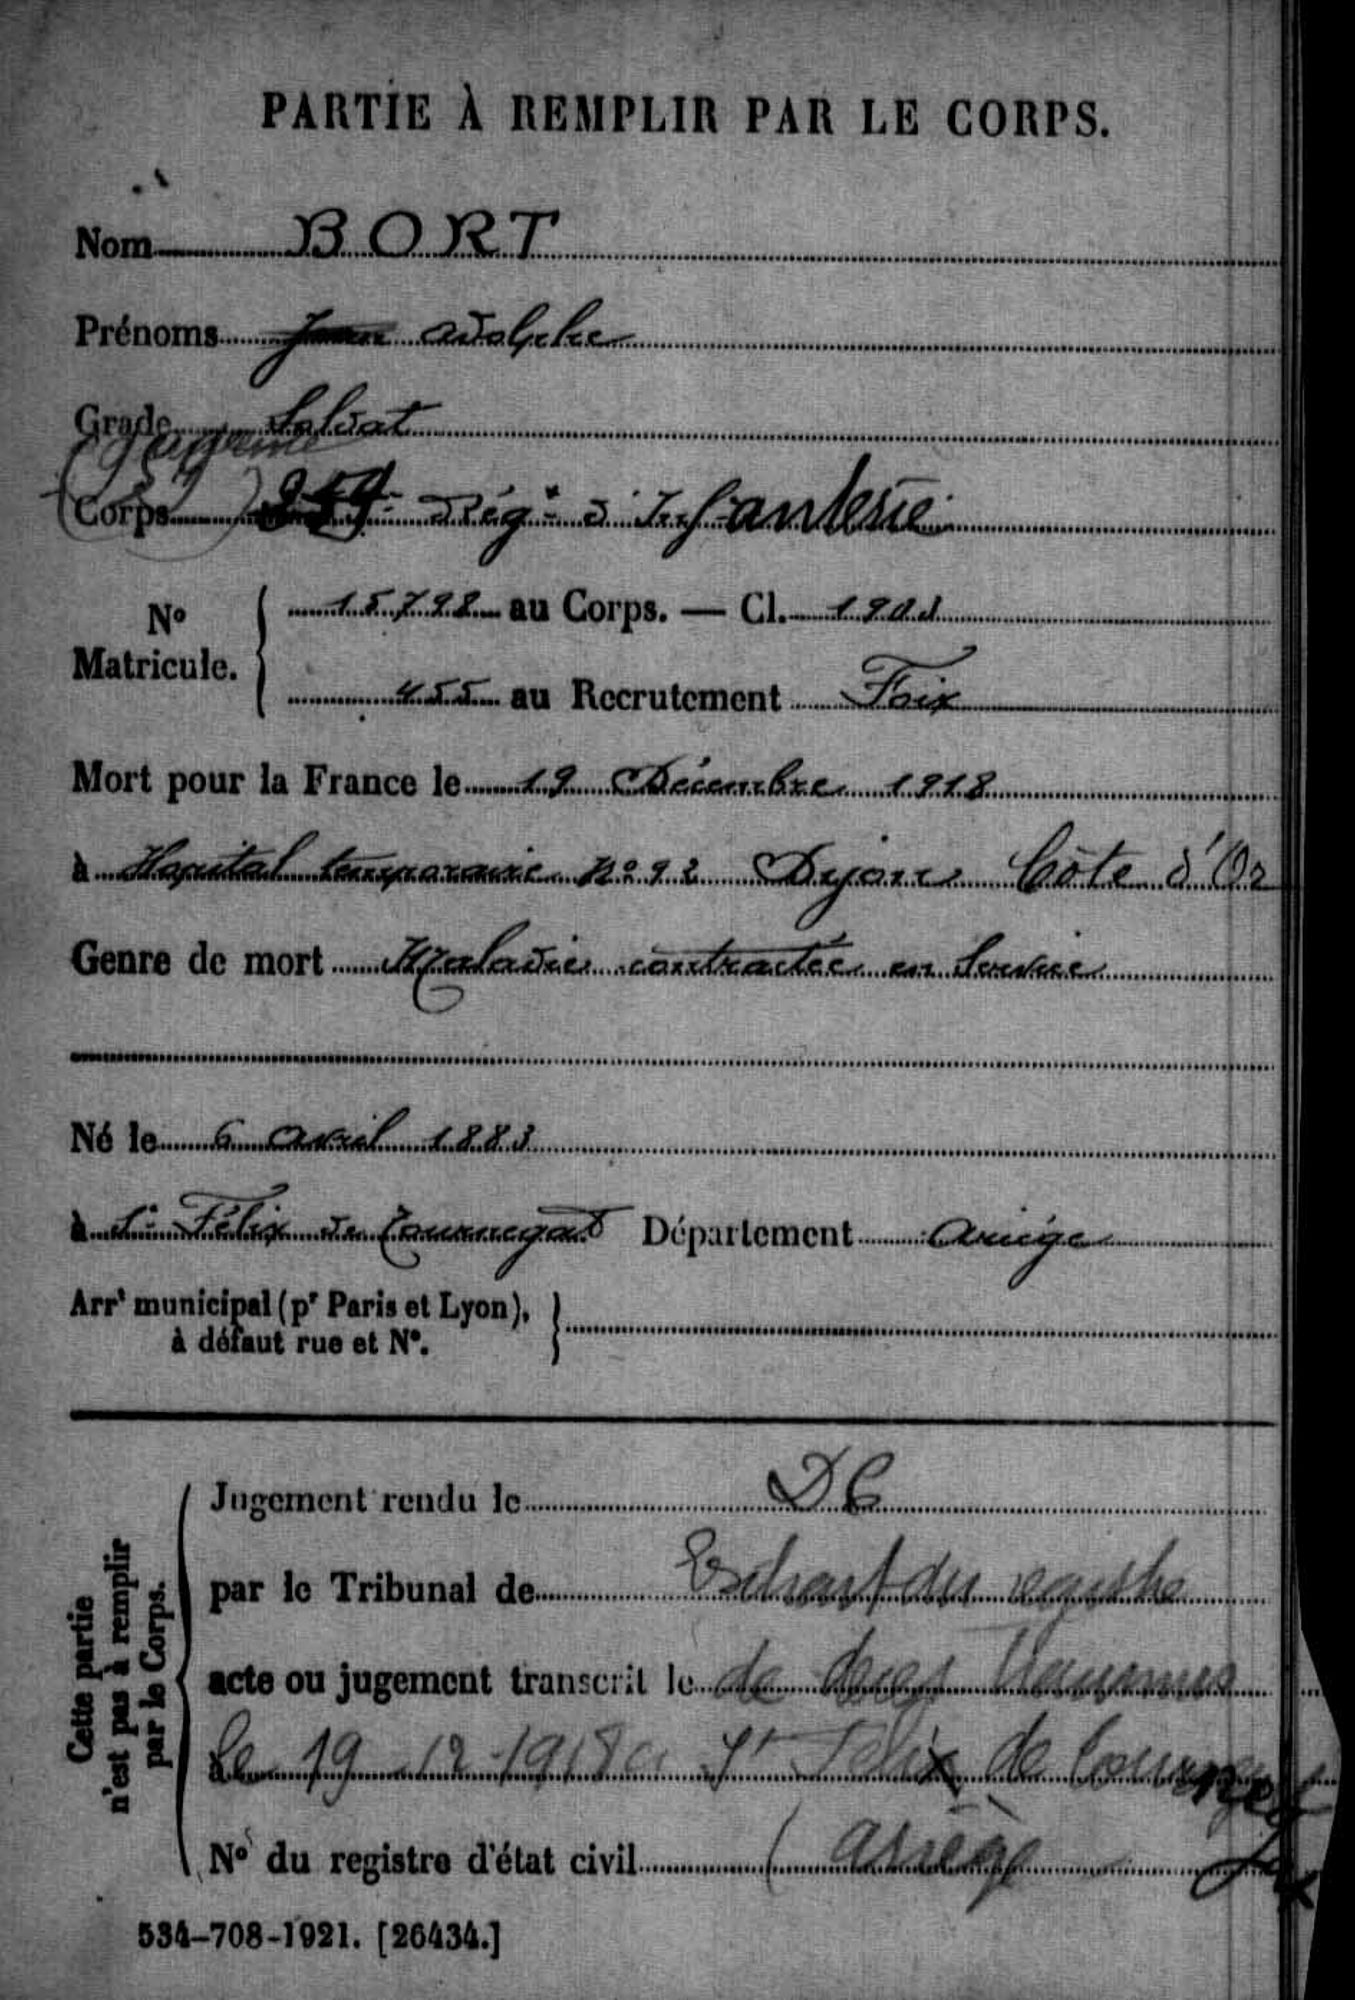 PARTIE À REMPLIR PAR LE CORPS.
Nom BORT
Prénoms Jean Adolphe
Grade Soldat
Corps Rég.t d'Infanterie
No Matricule.
15798 au Corps. — Cl. 1903
455 au Recrutement Foix
Mort pour la France le 19 Décembre 1918
à Hopital temporaire No 92 Dijon Côte d'Or
Genre de mort Maladie contractée en Service
Né le 6 Avril 1883
à St Félix de Tournegat Département Ariège
Arrt municipal (pr Paris et Lyon),
à défaut rue et No.
Cette partie
n'est pas à remplir
par le Corps.
Jugement rendu le DC
par le Tribunal de Extrait du registre
acte ou jugement transcrit le de décès
le 19-12-1918 à St Félix de Tournegat
No du registre d'état civil (Ariège
534-708-1921. [26434.]